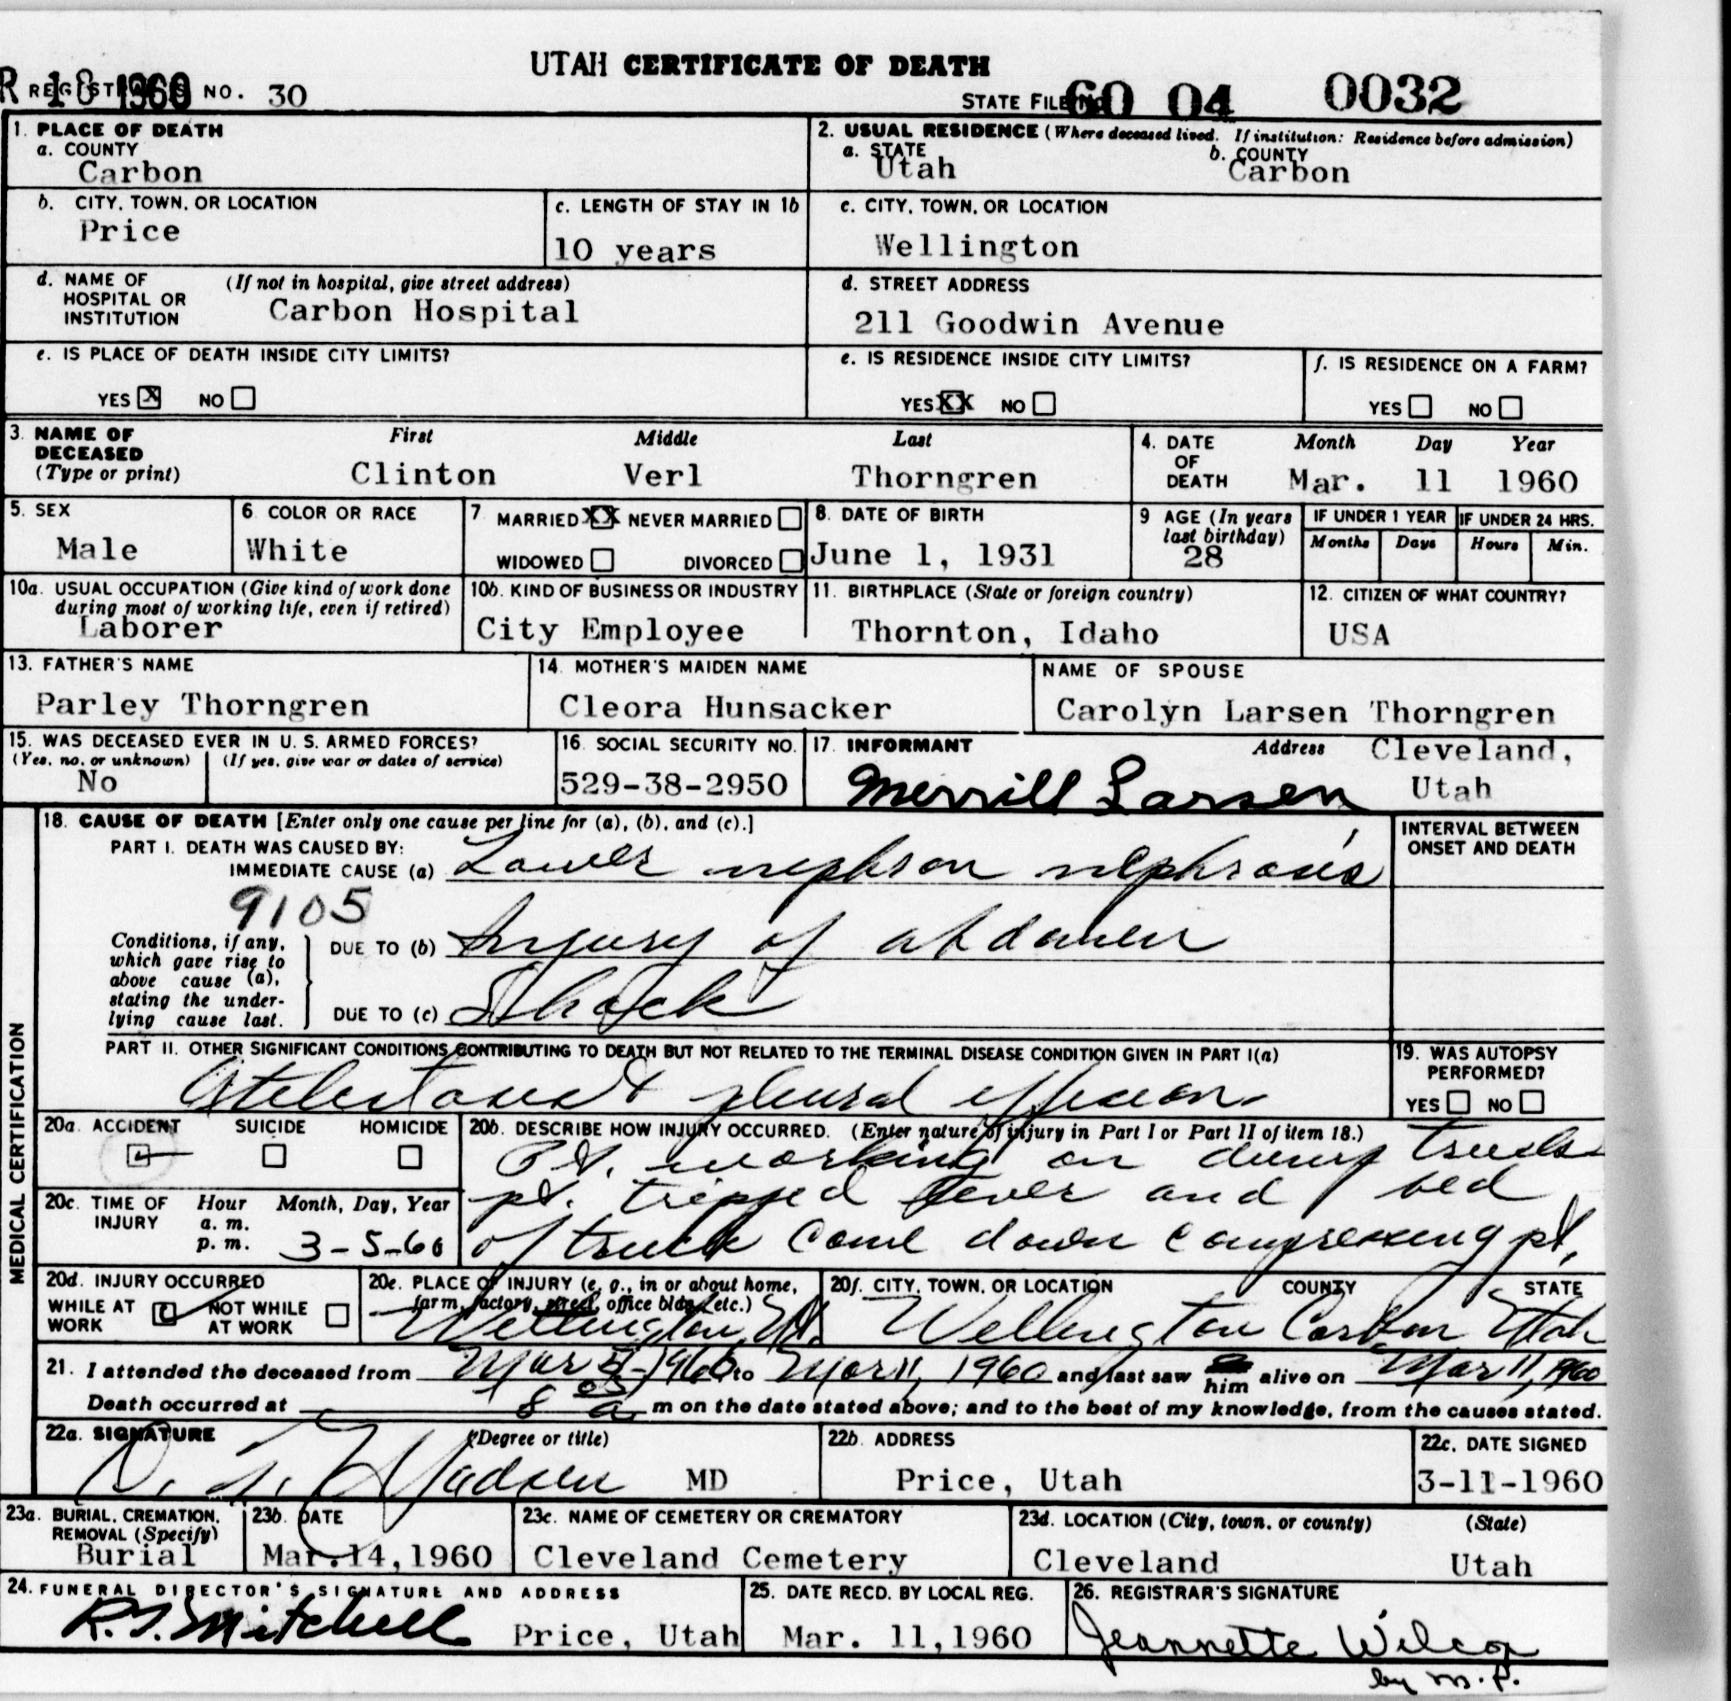 UTAH CERTIFICATE OF DEATH
REGISTRAR'S NO. 30
R 18 1960
STATE FILE NO. 60 04 0032
1. PLACE OF DEATH
a. COUNTY
Carbon
2. USUAL RESIDENCE (Where deceased lived. If institution: Residence before admission)
a. STATE
Utah
b. COUNTY
Carbon
b. CITY, TOWN, OR LOCATION
Price
c. LENGTH OF STAY IN 1b
10 years
c. CITY, TOWN, OR LOCATION
Wellington
d. NAME OF HOSPITAL OR INSTITUTION
(If not in hospital, give street address)
Carbon Hospital
d. STREET ADDRESS
211 Goodwin Avenue
e. IS PLACE OF DEATH INSIDE CITY LIMITS?
YES X NO
e. IS RESIDENCE INSIDE CITY LIMITS?
YES XX NO
f. IS RESIDENCE ON A FARM?
YES NO
3. NAME OF DECEASED (Type or print)
First Middle Last
Clinton Verl Thorngren
4. DATE OF DEATH
Month Day Year
Mar. 11 1960
5. SEX
Male
6. COLOR OR RACE
White
7 MARRIED XX NEVER MARRIED
WIDOWED DIVORCED
8. DATE OF BIRTH
June 1, 1931
9 AGE (In years last birthday)
28
IF UNDER 1 YEAR
Months Days
IF UNDER 24 HRS.
Hours Min.
10a. USUAL OCCUPATION (Give kind of work done during most of working life, even if retired)
Laborer
10b. KIND OF BUSINESS OR INDUSTRY
City Employee
11. BIRTHPLACE (State or foreign country)
Thornton, Idaho
12. CITIZEN OF WHAT COUNTRY?
USA
13. FATHER'S NAME
Parley Thorngren
14. MOTHER'S MAIDEN NAME
Cleora Hunsacker
NAME OF SPOUSE
Carolyn Larsen Thorngren
15. WAS DECEASED EVER IN U. S. ARMED FORCES?
(Yes, no, or unknown) (If yes, give war or dates of service)
No
16. SOCIAL SECURITY NO.
529-38-2950
17. INFORMANT Address
Merrill Larsen
Cleveland,
Utah
MEDICAL CERTIFICATION
18. CAUSE OF DEATH [Enter only one cause per line for (a), (b), and (c).]
PART I. DEATH WAS CAUSED BY:
IMMEDIATE CAUSE (a) Lower nephron nephrosis
9105
Conditions, if any, which gave rise to above cause (a), stating the underlying cause last.
DUE TO (b) Injury of abdomen
DUE TO (c) Shock
INTERVAL BETWEEN ONSET AND DEATH
PART II. OTHER SIGNIFICANT CONDITIONS CONTRIBUTING TO DEATH BUT NOT RELATED TO THE TERMINAL DISEASE CONDITION GIVEN IN PART I(a)
Atelectasis & pleural effusion
19. WAS AUTOPSY PERFORMED?
YES NO
20a. ACCIDENT SUICIDE HOMICIDE
20b. DESCRIBE HOW INJURY OCCURRED. (Enter nature of injury in Part I or Part II of item 18.)
Pt. working on dump truck
pt. tripped lever and bed
of truck came down compressing pt.
20c. TIME OF INJURY
Hour Month, Day, Year
a. m.
p. m.
3-5-60
20d. INJURY OCCURRED
WHILE AT WORK NOT WHILE AT WORK
20e. PLACE OF INJURY (e. g., in or about home, farm, factory, street, office bldg., etc.)
Wellington, Ut.
20f. CITY, TOWN, OR LOCATION COUNTY STATE
Wellington Carbon Utah
21. I attended the deceased from Mar 5-1960 to Mar 11, 1960 and last saw him alive on Mar 11, 1960
Death occurred at 8 05 a m on the date stated above; and to the best of my knowledge, from the causes stated.
22a. SIGNATURE (Degree or title)
Madsen MD
22b. ADDRESS
Price, Utah
22c. DATE SIGNED
3-11-1960
23a. BURIAL, CREMATION, REMOVAL (Specify)
Burial
23b. DATE
Mar. 14, 1960
23c. NAME OF CEMETERY OR CREMATORY
Cleveland Cemetery
23d. LOCATION (City, town, or county) (State)
Cleveland Utah
24. FUNERAL DIRECTOR'S SIGNATURE AND ADDRESS
Mitchell Price, Utah
25. DATE RECD. BY LOCAL REG.
Mar. 11, 1960
26. REGISTRAR'S SIGNATURE
Jeannette Wilcox
by M.P.